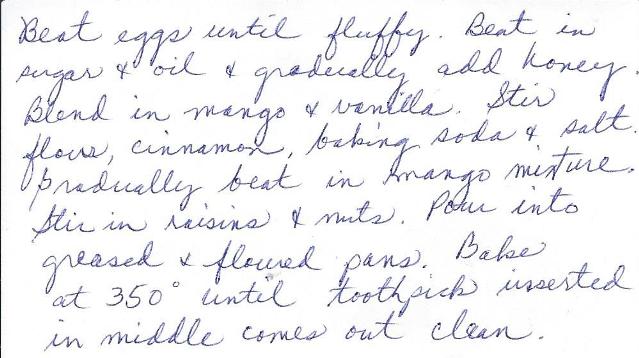 Beat eggs until fluffy. Beat in
sugar & oil & gradually add honey.
Blend in mango & vanilla. Stir
flour, cinnamon, baking soda & salt.
Gradually beat in mango mixture.
Stir in raisins & nuts. Pour into
greased & floured pans. Bake
at 350° until toothpick inserted
in middle comes out clean.